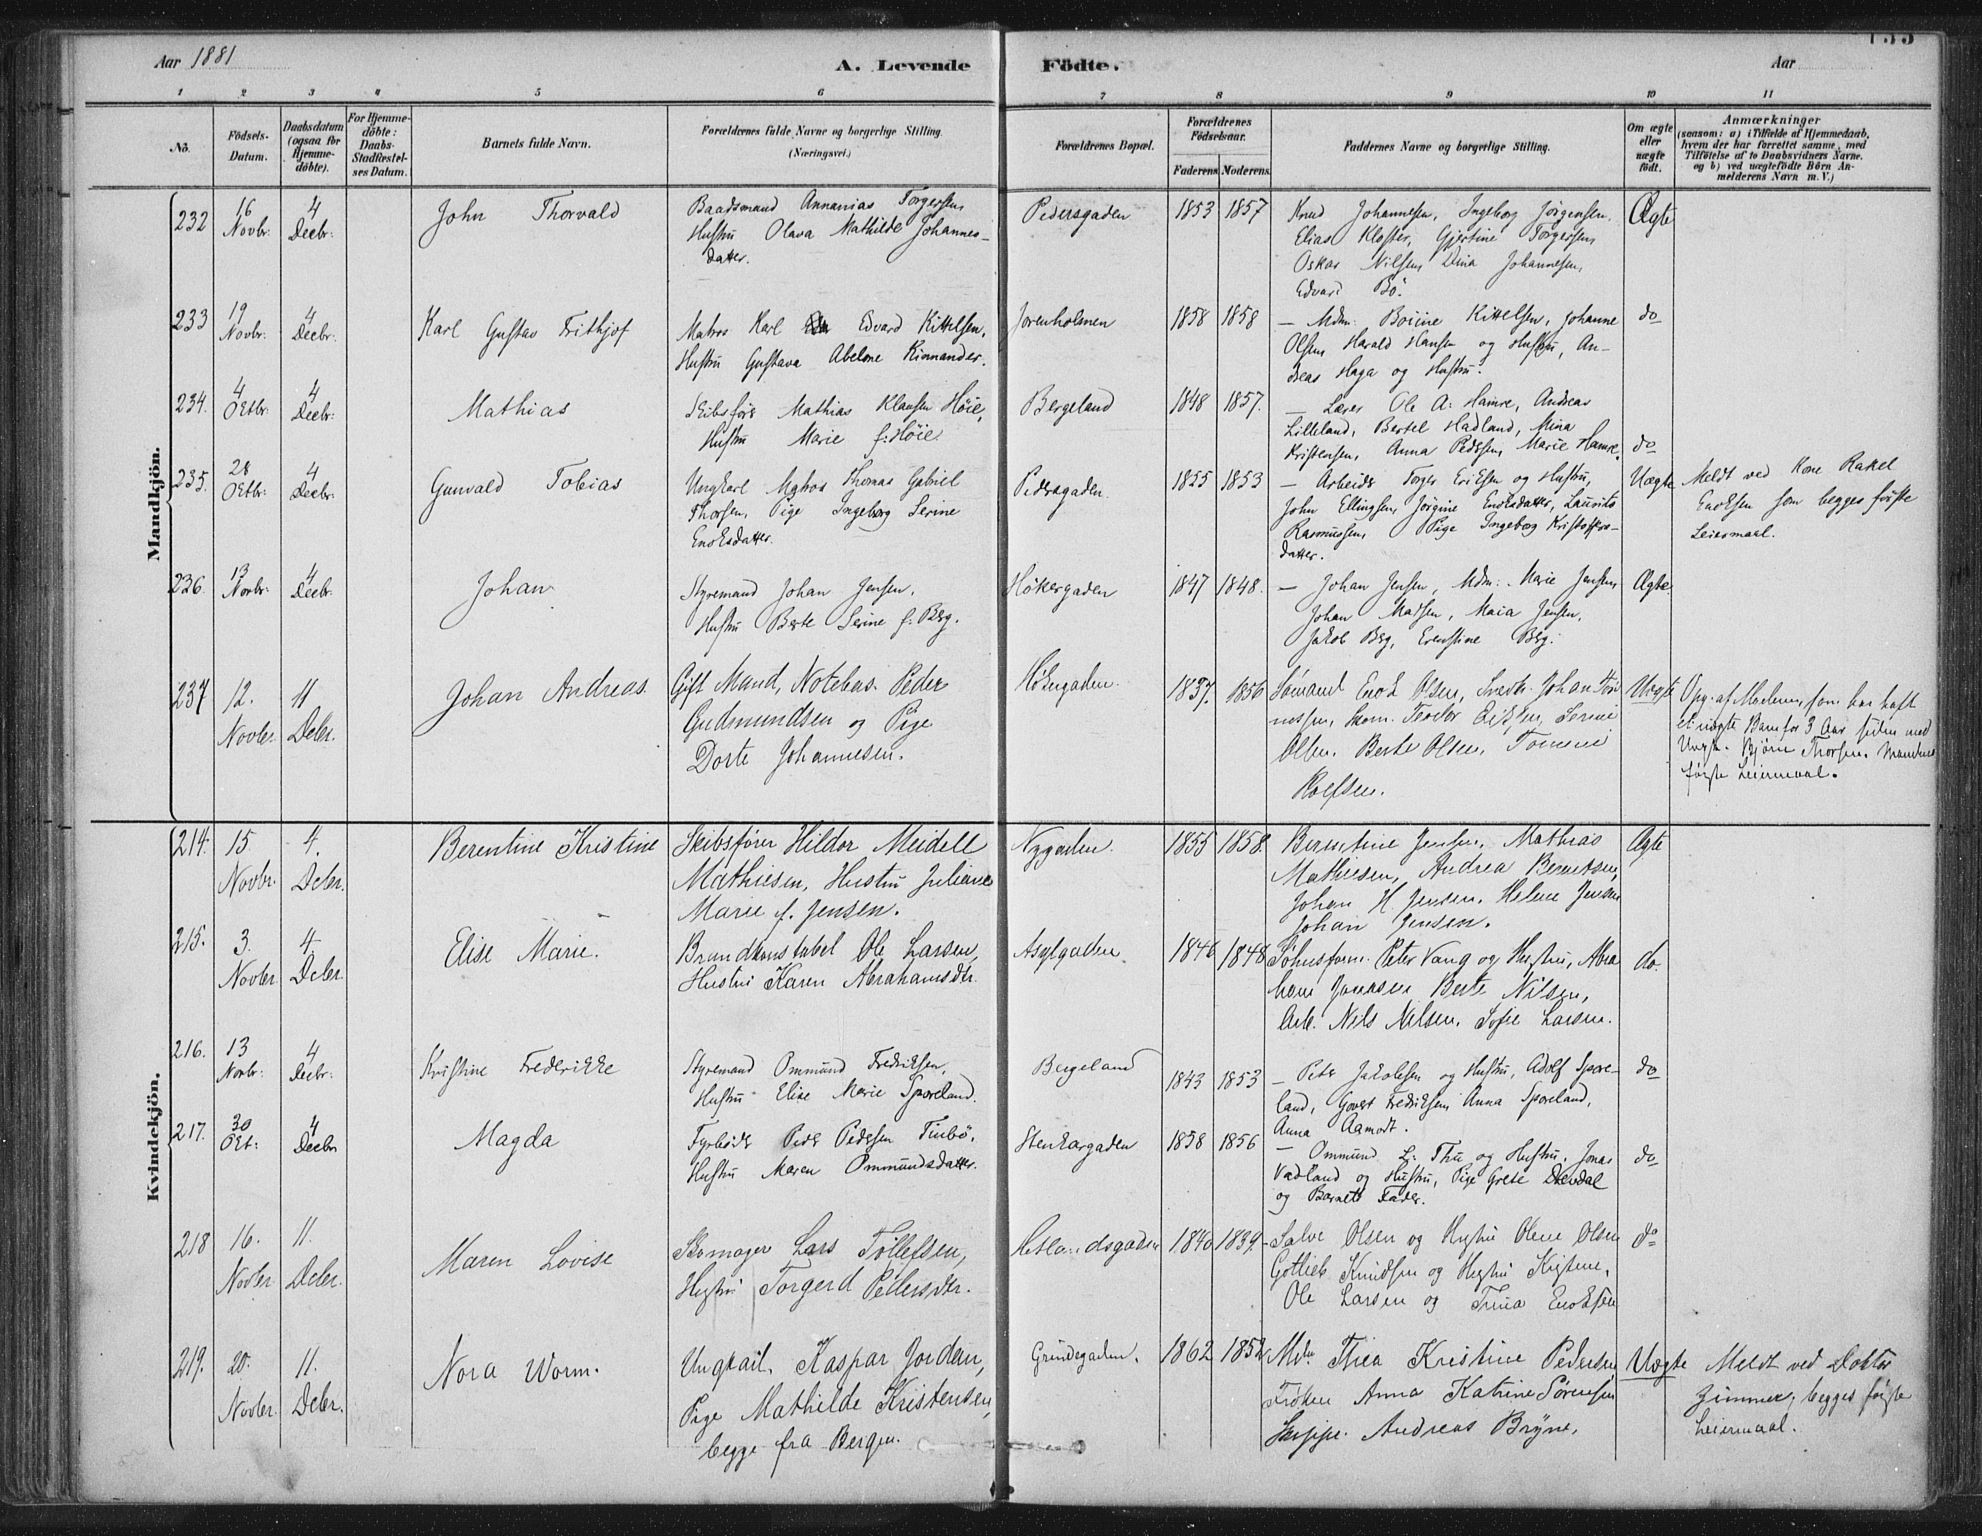 Aar 1881
A. Levende Födte.
Aar
1 2 3 4 5 6 7 8 9 10 11
No.
Födsels-Datum.
Daabsdatum (ogsaa for Hjemme-döbte).
For Hjemme-döbte: Daabs-Stadfæstel-ses Datum.
Barnets fulde Navn.
Forældrenes fulde Navne og borgerlige Stilling. (Næringsvei.)
Forældrenes Bopæl.
Forældrenes Födselsaar.
Faderens Moderens
Faddernes Navne og borgerlige Stilling.
Om ægte eller uægte födt.
Anmærkninger
(saasom: a) i Tilfælde af Hjemmedaab,
hvem der har forrettet samme, med
Tilföielse af to Daabsvidners Navne.
og b) ved uægtefödte Börn An-
melderens Navn m. V.)
Mandkjön.
232 16 Novbr: 4 Decbr: John Thorvald
Baadsmand Annanias Torgersen,
Hustru Olava Mathilde Johannes-
datter.
Pedersgaden 1853 1857
Knud Johannesen, Ingeborg Jørgensen.
Elias Kloster, Gjertine Torgersen,
Oskar Nilsen, Dina Johannesen,
Edvard Bö.
Ægte
233 19 Novbr: 4 Decbr: Karl Gustav Frithjof
Matros Karl Edvard Kittelsen,
Hustru Gustava Abelone Kinnander.
Jorenholmen 1858 1858
— Mdm: Boiine Kittelsen, Johanne
Olsen, Harald Hansen og Hustru, An-
dreas Haga og Hustru.
do
234. 4 Octbr: 4 Decbr: Mathias
Skibsfører Mathias Klausen Høie,
Hustru Marie f: Høie.
Bergeland 1848 1857.
— Lærer Ole A: Hamre, Andreas
Lilleland, Bertel Hadland, Mina
Kristensen, Anna Pedersen, Marie Hamre.
do
235. 28 Octbr: 4 Decbr: Gunvald Tobias
Ungkarl Matros Thomas Gabriel
Thorsen, Pige Ingeborg Serine
Enoksdatter.
Pedersgaden. 1855 1853
— Arbeider Torger Eriksen og Hustru,
John Ellingsen, Jørgine Enoksdatter, Laurits
Rasmussen, Pige Ingeborg Kristoffers-
datter.
Uægte
Meldt ved Kone Rakel
Enoksen som begges første
Leiermaal.
236. 13 Novbr: 4 Decbr: Johan
Styremand Johan Jensen,
Hustru Berte Serine f: Berg.
Høkergaden 1847 1848.
— Johan Jensen, Mdm: Marie Jensen,
Johan Madsen, Maia Jensen,
Jakob Berg, Ernstine Berg.
Ægte.
237 12. Novbr. 11 Decbr. Johan Andreas
Gift Mand, Notebas. Peder
Gudmundsen og Pige
Dorte Johannesen.
Høkergaden. 1837. 1856
Sømand Enok Olsen, Johan Tön
nessen, Teodor Eriksen, Serine
Olsen, Berte Olsen, Tomine
Rolfsen.
Uægte
Opg. af Moderen, som har haft
et uægte Barn for 3 Aar siden med
Ungk. Bjørn Thorsen. Mandens
første Leiermaal.
Kvindekjön.
214. 15. Novbr. 4. Decbr. Berentine Kristine
Skibsfører Hildor Meidell
Mathiesen, Hustru Juliane
Marie f. Jensen.
Nygaden. 1855 1858.
Berentine Jensen, Mathias
Mathiesen, Andrea Berntsen,
Johan H Jensen, Helene Jensen
Johan Jensen.
Ægte
215. 3. Novbr. 4 Decbr. Elise Marie.
Brandkonstabel Ole Larsen,
Hustru Karen Abrahamsdtr.
Asylgaden 1846 1848
Peter Vang og Hustru, Abra
ham Jonassen Berte Nilsen,
Arb. Nils Nilsen, Sofie Larsen.
do.
216. 13 Novbr: 4 Decbr: Kristine Frederikke
Styremand Ommund Fredriksen,
Hustru Elise Marie Sporeland.
Bergeland 1843 1853
— Peter Jakobsen og Hustru, Adolf Spore-
land, Govert Fredriksen, Anna Sporeland,
Anna Aamodt.
do
217. 30 Oct: 4 Decbr Magda
Fyrbøder Peder Pedersen Tinbö,
Hustru Maren Ommundsdatter.
Stenkargaden 1858 1856
— Ommund L: Thu og Hustru, Jonas
Vadland og Hustru, Pige Grete
og Barnets Fader.
do
218 16. Novbr 11. Decbr. Maren Lovise
Skomager Lars Tollefsen,
Hustru Torgerd Pedersdtr.
Hetlandsgaden 1840 1839.
Salve Olsen og Hustru Olene Olsen
Gotlieb Knudsen og Hustru Kristene,
Ole Larsen og Trina Enoksen
do
219. 20. Novbr. 11. Decbr. Nora Worm.
Ungkarl Kaspar Jordan,
Pige Mathilde Kristensen,
begge fra Bergen.
Grundegaden. 1862 1852
Mdm Thea Kristine Pedersen
Frøken Anna Katrine Sørensen
Andreas Bryne.
Uægte
Meldt ved Doktor
Zimmer, begges første
Leiermaal.